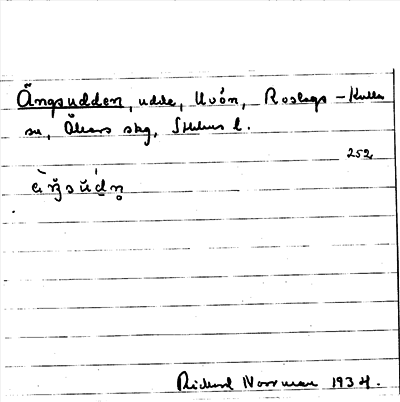 Ängsudden, udde, Uvön, Roslags-Kulla
sn, Åkers skg, Sthlms l.
252
Rickard Norrman 1934.